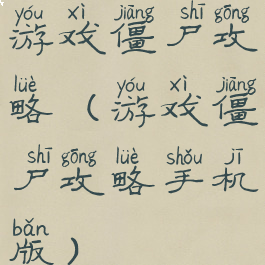 yóu xì jiāng shī gōng
游戏僵尸攻
lüè yóu xì jiāng
略(游戏僵
shī gōng lüè shǒu jī
尸攻略手机
bǎn
版)